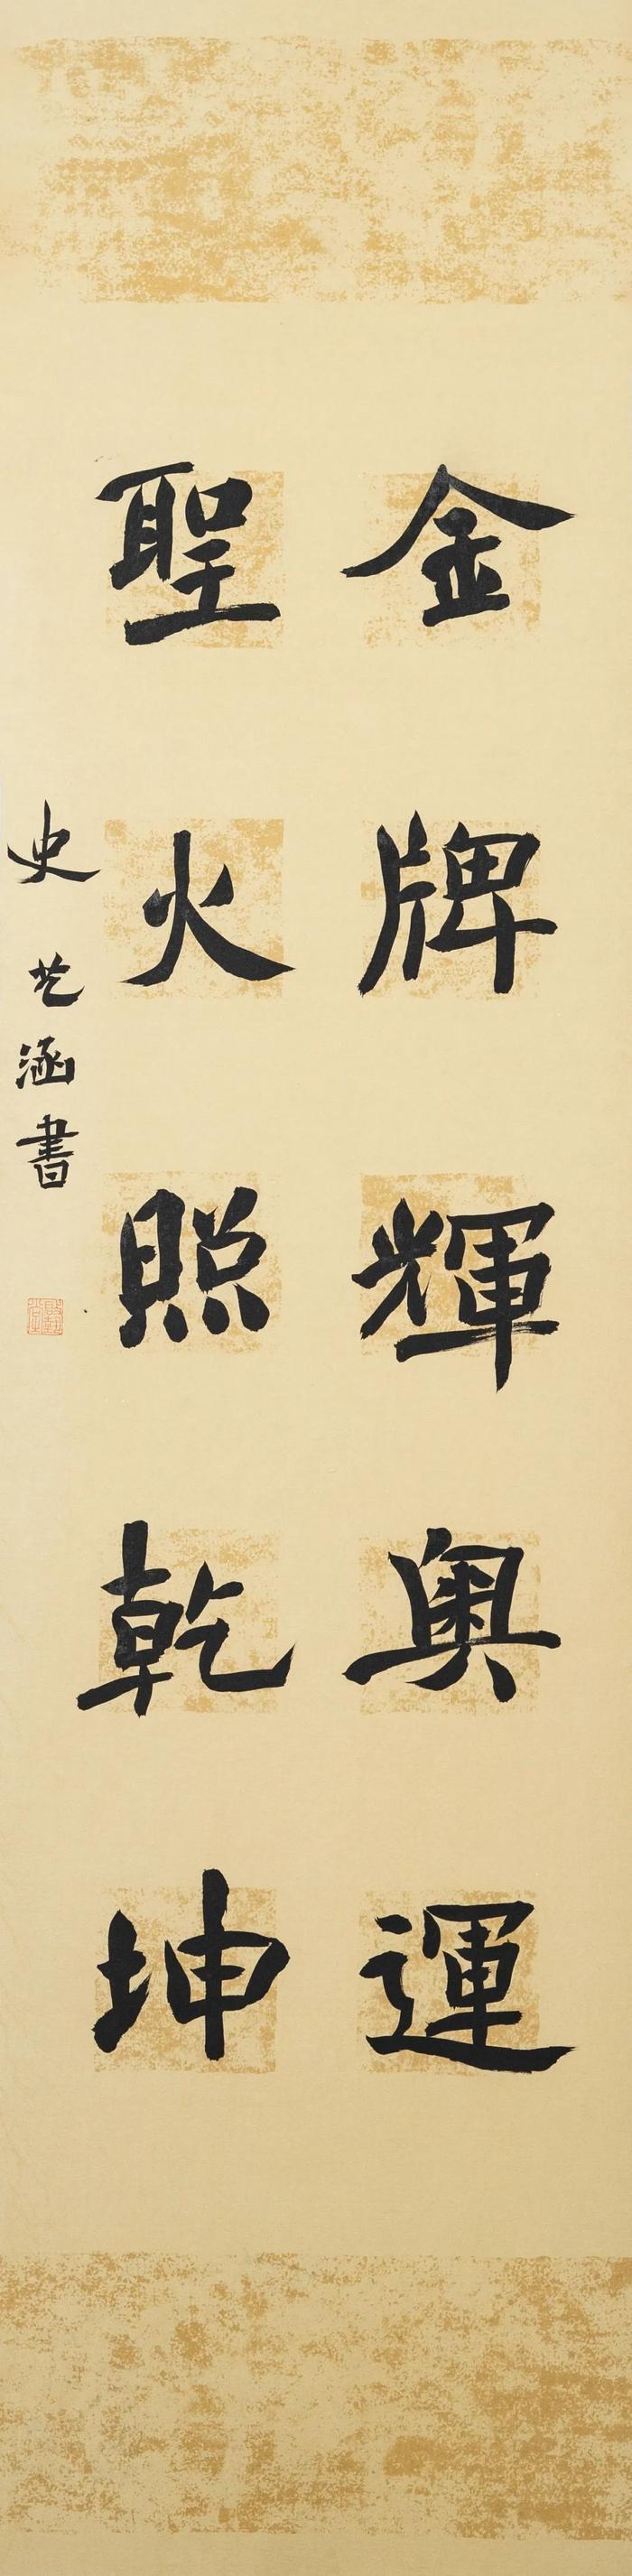 金牌輝奥運
聖火照乾坤
史艺涵書